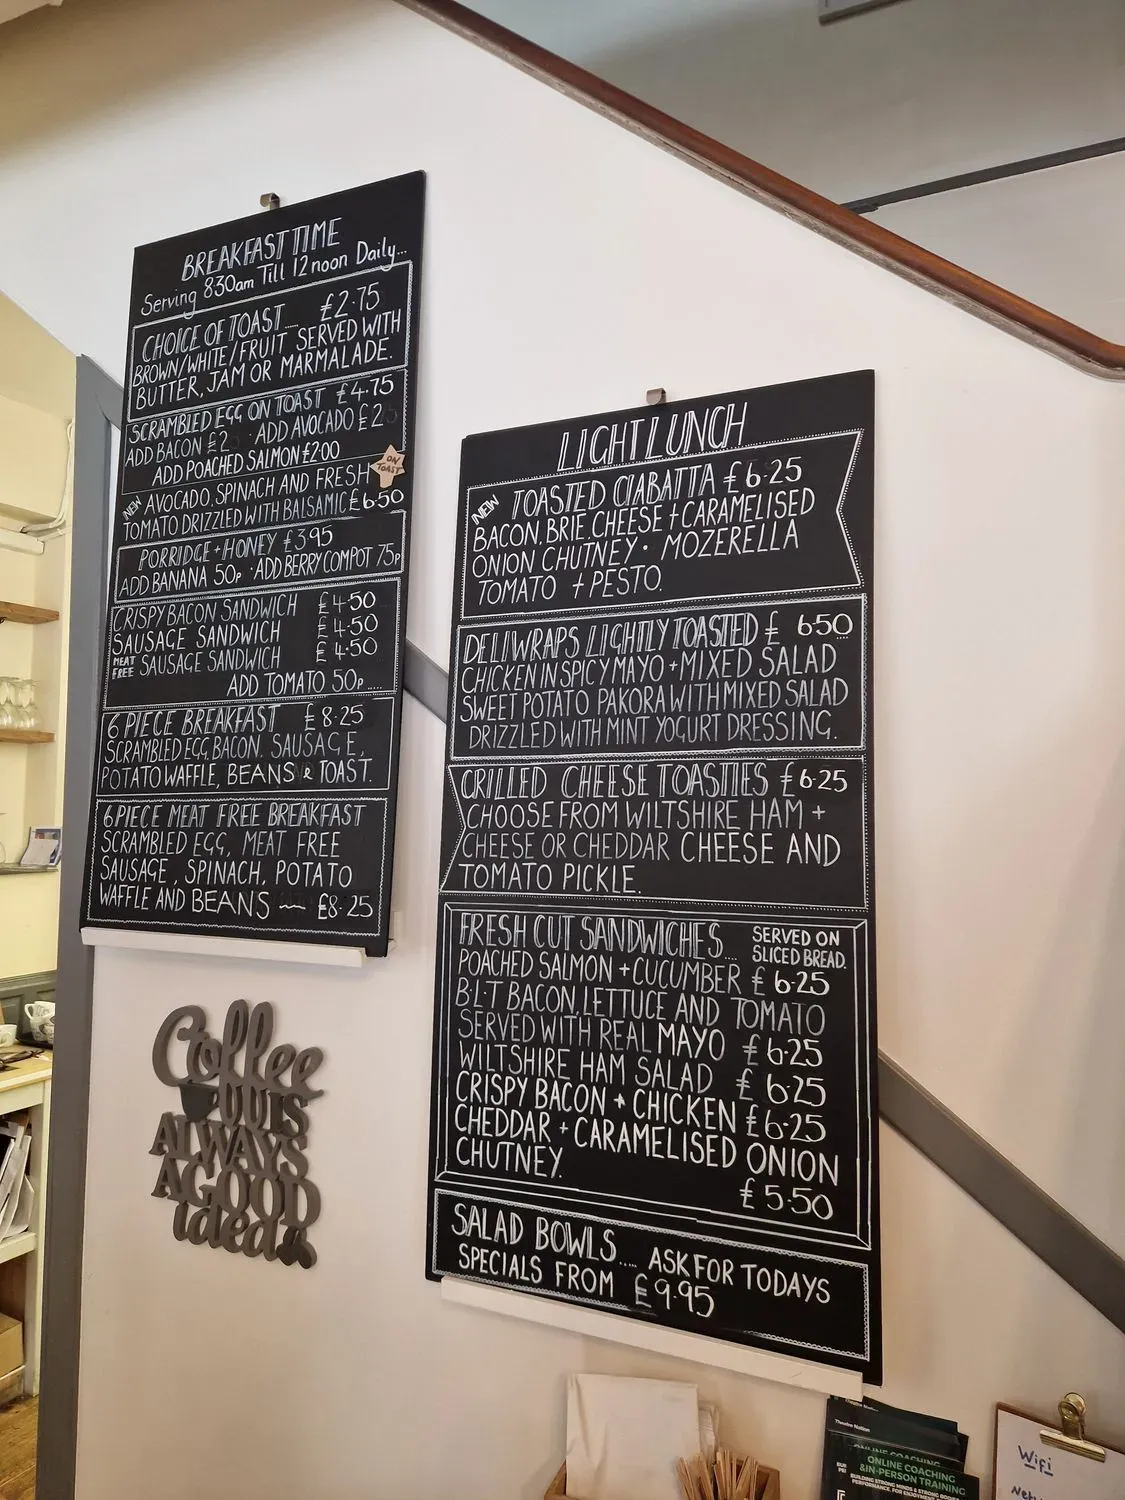 BREAKFAST TIME
Serving 830am Till 12 noon Daily...
CHOICE OF TOAST.... £2.75
BROWN/WHITE/FRUIT SERVED WITH
BUTTER, JAM OR MARMALADE.
SCRAMBLED EGG ON TOAST £4.75
ADD BACON £2 · ADD AVOCADO £2
ADD POACHED SALMON £2.00
ON
TOAST
NEW AVOCADO, SPINACH AND FRESH
TOMATO DRIZZLED WITH BALSAMIC £6.50
PORRIDGE + HONEY £3.95
ADD BANANA 50p · ADD BERRY COMPOT 75p
CRISPY BACON SANDWICH £4.50
SAUSAGE SANDWICH £4.50
MEAT FREE SAUSAGE SANDWICH £4.50
ADD TOMATO 50p .....
6 PIECE BREAKFAST £8.25
SCRAMBLED EGG, BACON. SAUSAGE,
POTATO WAFFLE, BEANS & TOAST.
6 PIECE MEAT FREE BREAKFAST
SCRAMBLED EGG, MEAT FREE
SAUSAGE, SPINACH, POTATO
WAFFLE AND BEANS —— £8.25
Coffee
IS
ALWAYS
A GOOD
idea
LIGHT LUNCH
NEW TOASTED CIABATTA £6.25
BACON, BRIE, CHEESE + CARAMELISED
ONION CHUTNEY · MOZERELLA
TOMATO + PESTO.
DELI WRAPS LIGHTLY TOASTED £ 6.50
CHICKEN IN SPICY MAYO + MIXED SALAD
SWEET POTATO PAKORA WITH MIXED SALAD
DRIZZLED WITH MINT YOGURT DRESSING.
GRILLED CHEESE TOASTIES £6.25
CHOOSE FROM WILTSHIRE HAM +
CHEESE OR CHEDDAR CHEESE AND
TOMATO PICKLE.
FRESH CUT SANDWICHES.... SERVED ON
SLICED BREAD.
POACHED SALMON + CUCUMBER £ 6.25
B·L·T BACON, LETTUCE AND TOMATO
SERVED WITH REAL MAYO £ 6.25
WILTSHIRE HAM SALAD £ 6.25
CRISPY BACON + CHICKEN £6.25
CHEDDAR + CARAMELISED ONION
CHUTNEY.
£5.50
SALAD BOWLS.... ASK FOR TODAYS
SPECIALS FROM £9.95
Theatre Nation
ONLINE COACHING
ONLINE COACHING
&IN-PERSON TRAINING
BUILDING STRONG MINDS & STRONG
PERFORMANCE. FOR
Wifi